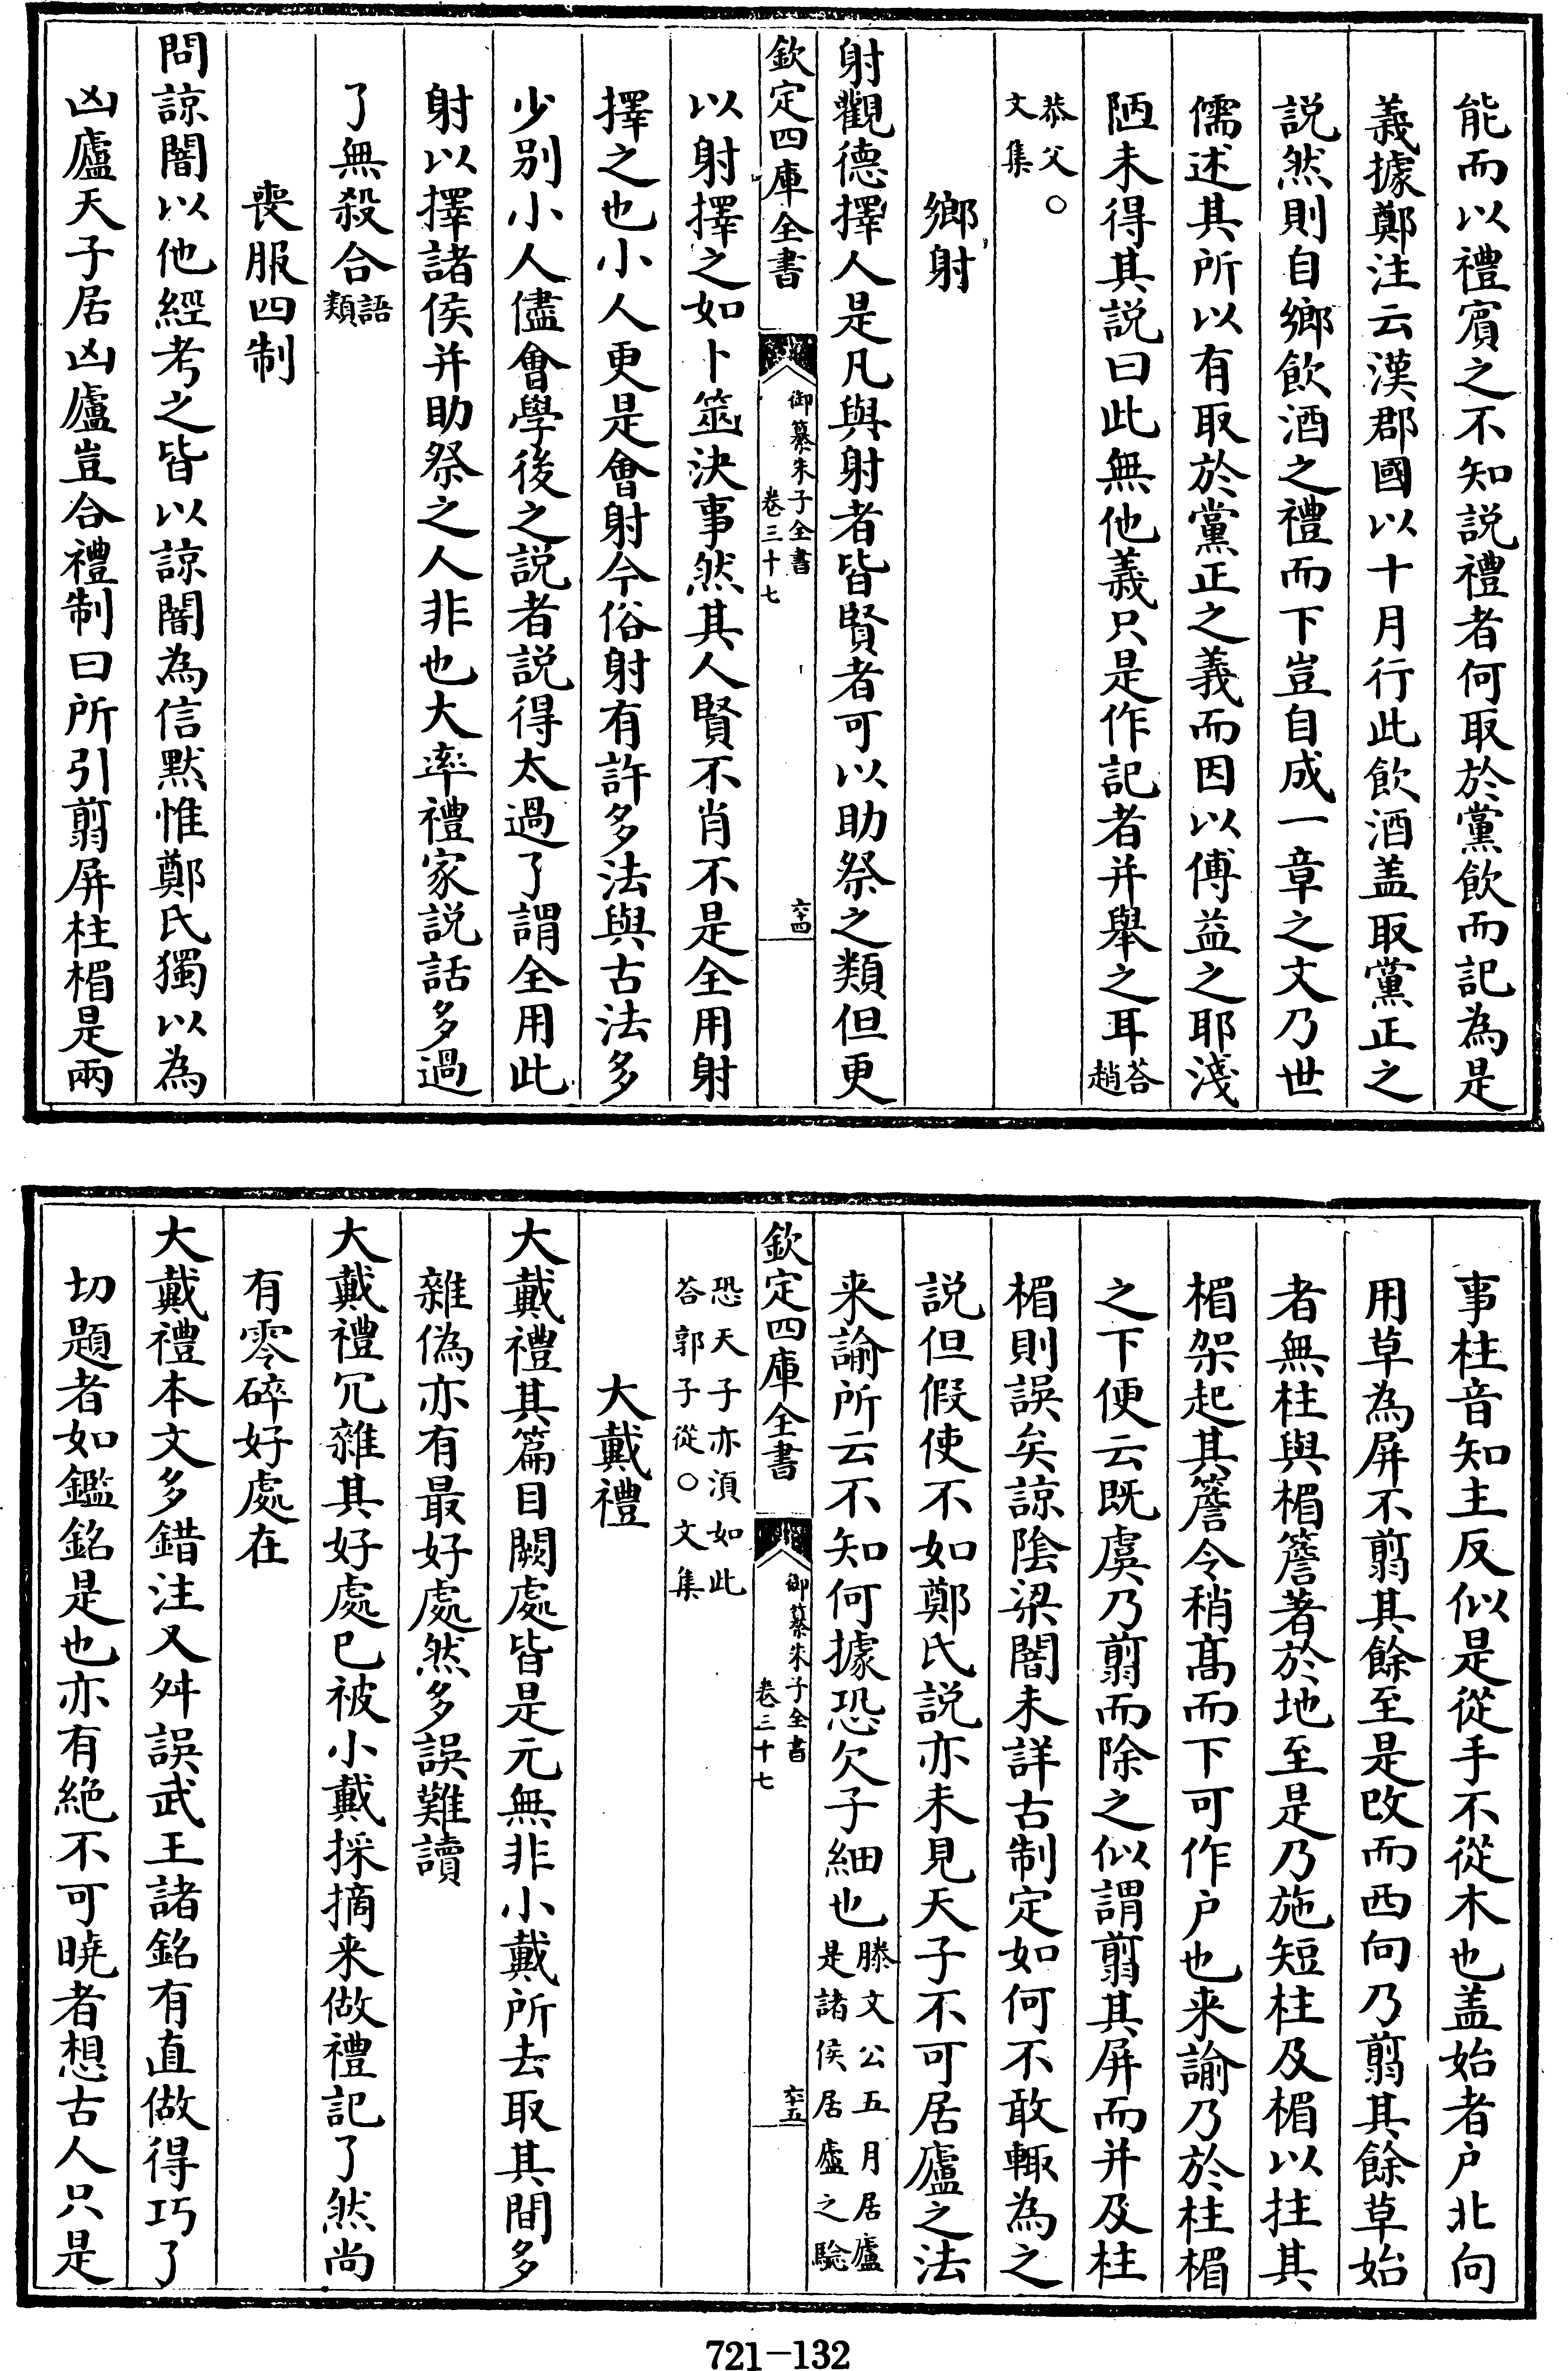 能而以禮賔之不知説禮者何取於黨飲而記為是
義據鄭注云漢郡國以十月行此飲酒盖取黨正之
説然則自鄉飲酒之禮而下豈自成一章之文乃世
儒述其所以有取於黨正之義而因以傅益之耶淺
陋未得其説曰此無他義只是作記者并舉之耳荅趙
恭父○文集
鄉射
射觀德擇人是凡與射者皆賢者可以助祭之類但更
欽定四庫全書
御纂朱子全書
卷三十七
六十四
以射擇之如卜筮決事然其人賢不肖不是全用射
擇之也小人更是會射今俗射有許多法與古法多
少别小人儘會學後之説者説得太過了謂全用此
射以擇諸侯并助祭之人非也大率禮家説話多過
了無殺合語類
喪服四制
問諒闇以他經考之皆以諒闇為信黙惟鄭氏獨以為
凶廬天子居凶廬豈合禮制曰所引翦屏柱楣是兩
事柱音知主反似是從手不從木也盖始者户北向
用草為屏不翦其餘至是改而西向乃翦其餘草始
者無柱與楣簷著於地至是乃施短柱及楣以拄其
楣架起其簷令稍髙而下可作户也来諭乃於柱楣
之下便云既虞乃翦而除之似謂翦其屏而并及柱
楣則誤矣諒隂梁闇未詳古制定如何不敢輙為之
説但假使不如鄭氏説亦未見天子不可居廬之法
来諭所云不知何據恐欠子細也滕文公五月居廬是諸侯居廬之驗
欽定四庫全書
御纂朱子全書
卷三十七
六十五
恐天子亦湏如此荅郭子從○文集
大戴禮
大戴禮其篇目闕處皆是元無非小戴所去取其間多
雜偽亦有最好處然多誤難讀
大戴禮冗雜其好處已被小戴採摘来做禮記了然尚
有零碎好處在
大戴禮本文多錯注又舛誤武王諸銘有直做得巧了
切題者如鑑銘是也亦有絶不可曉者想古人只是
721-132